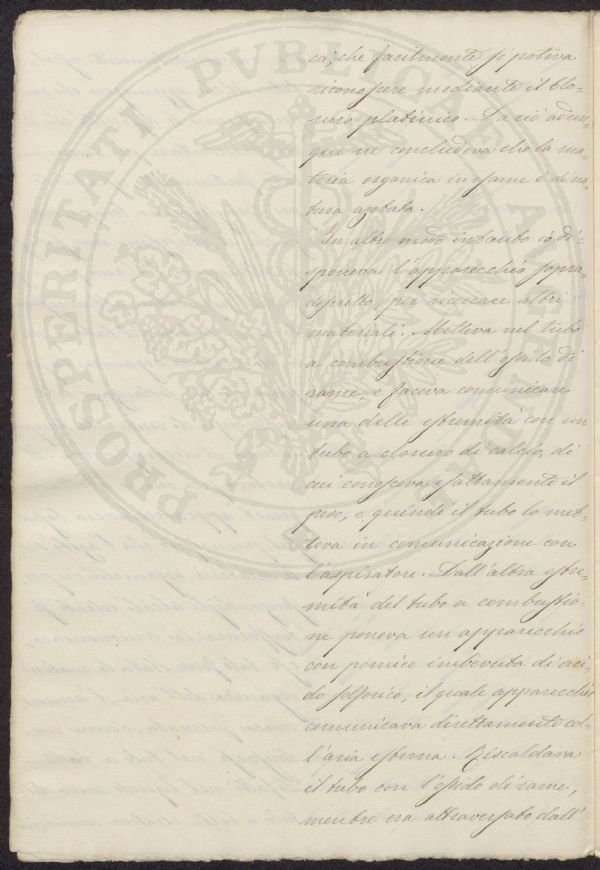 ca, che facilmente si poteva
riconoscere mediante il clo-
ruro platinico. Da ciò adun-
que ne concludeva che la ma-
teria organica in esame è di na-
tura azotata.
In altro modo intanto io di-
sponeva l'apparecchio sopra-
descritto, per ricercare altri
materiali. Metteva nel tubo
a combustione dell'ossido di
rame, e faceva comunicare
una delle estremità con un
tubo a cloruro di calcio, di
cui conosceva esattamente il
peso, e quindi il tubo lo met-
teva in comunicazione con
l'aspiratore. Dall'altra estre-
mità del tubo a combustio-
ne poneva un apparecchio
con pomice imbevuta di aci-
do solforico, il quale apparecchio
comunicava direttamente col-
l'aria esterna. Riscaldava
il tubo con l'ossido di rame,
mentre era attraversato dall'
PROSPERITATI PUBLICAE AU